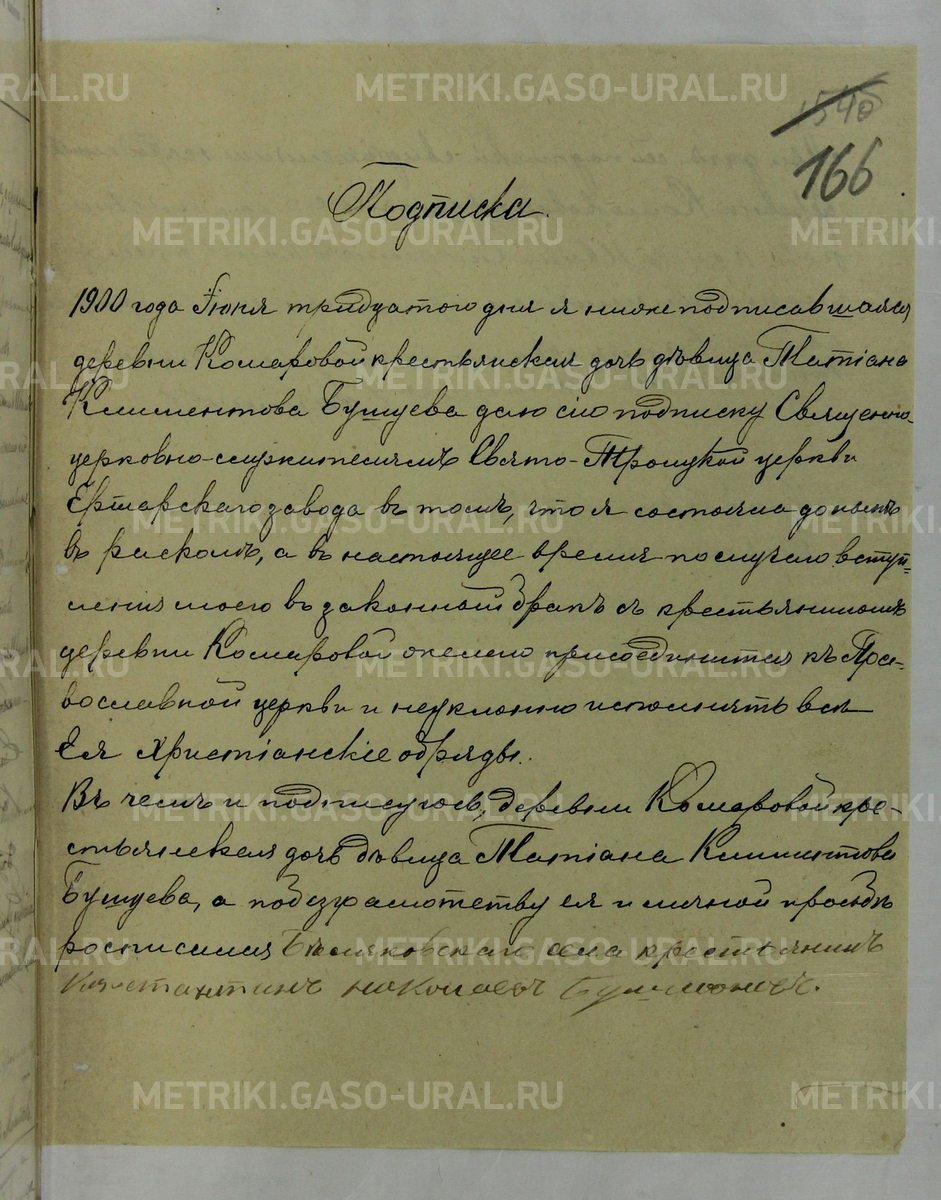 1540
166
Подписка.
1900 года Июня тридцатого дня я ниже подписавшаяся,
деревни Комаровой крестьянская дочь дѣвица Татiана
Климентова Бушуева даю сiю подписку Священно-
церковно-служителямъ Свято-Троицкой церкви
Ертарскаго завода въ томъ, что я состояла до нынѣ
въ расколѣ, а въ настоящее время по случаю вступ-
ленiя моего въ законный бракъ съ крестьяниномъ
деревни Комаровой желаю присоединится къ Пра-
вославной церкви и неуклонно исполнять все
Ея Христiанскiе обряды.
Въ чемъ и подписуюсь, деревни Комаровой кре-
стьянская дочь дѣвица Татiана Климентова
Бушуева, а по безграмотству ея и личной просьбѣ
росписался Бѣляковскаго села крестьянинъ
Константинъ николаевъ
METRIKI.GASO-URAL.RU